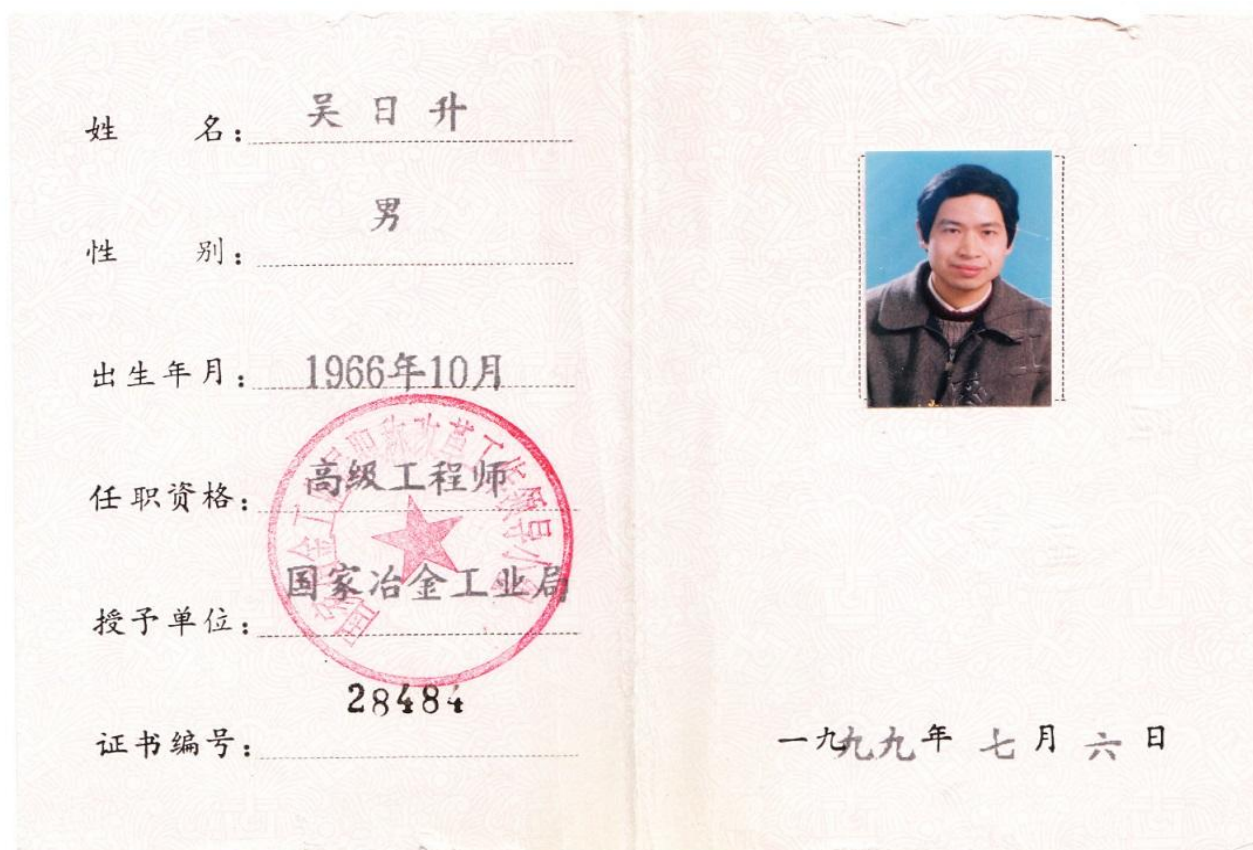 姓名：吴日升
性别：男
出生年月：1966年10月
任职资格：高级工程师
授予单位：国家冶金工业局
证书编号：28484
国家冶金工业局职称改革工作领导小组
一九九九年七月六日